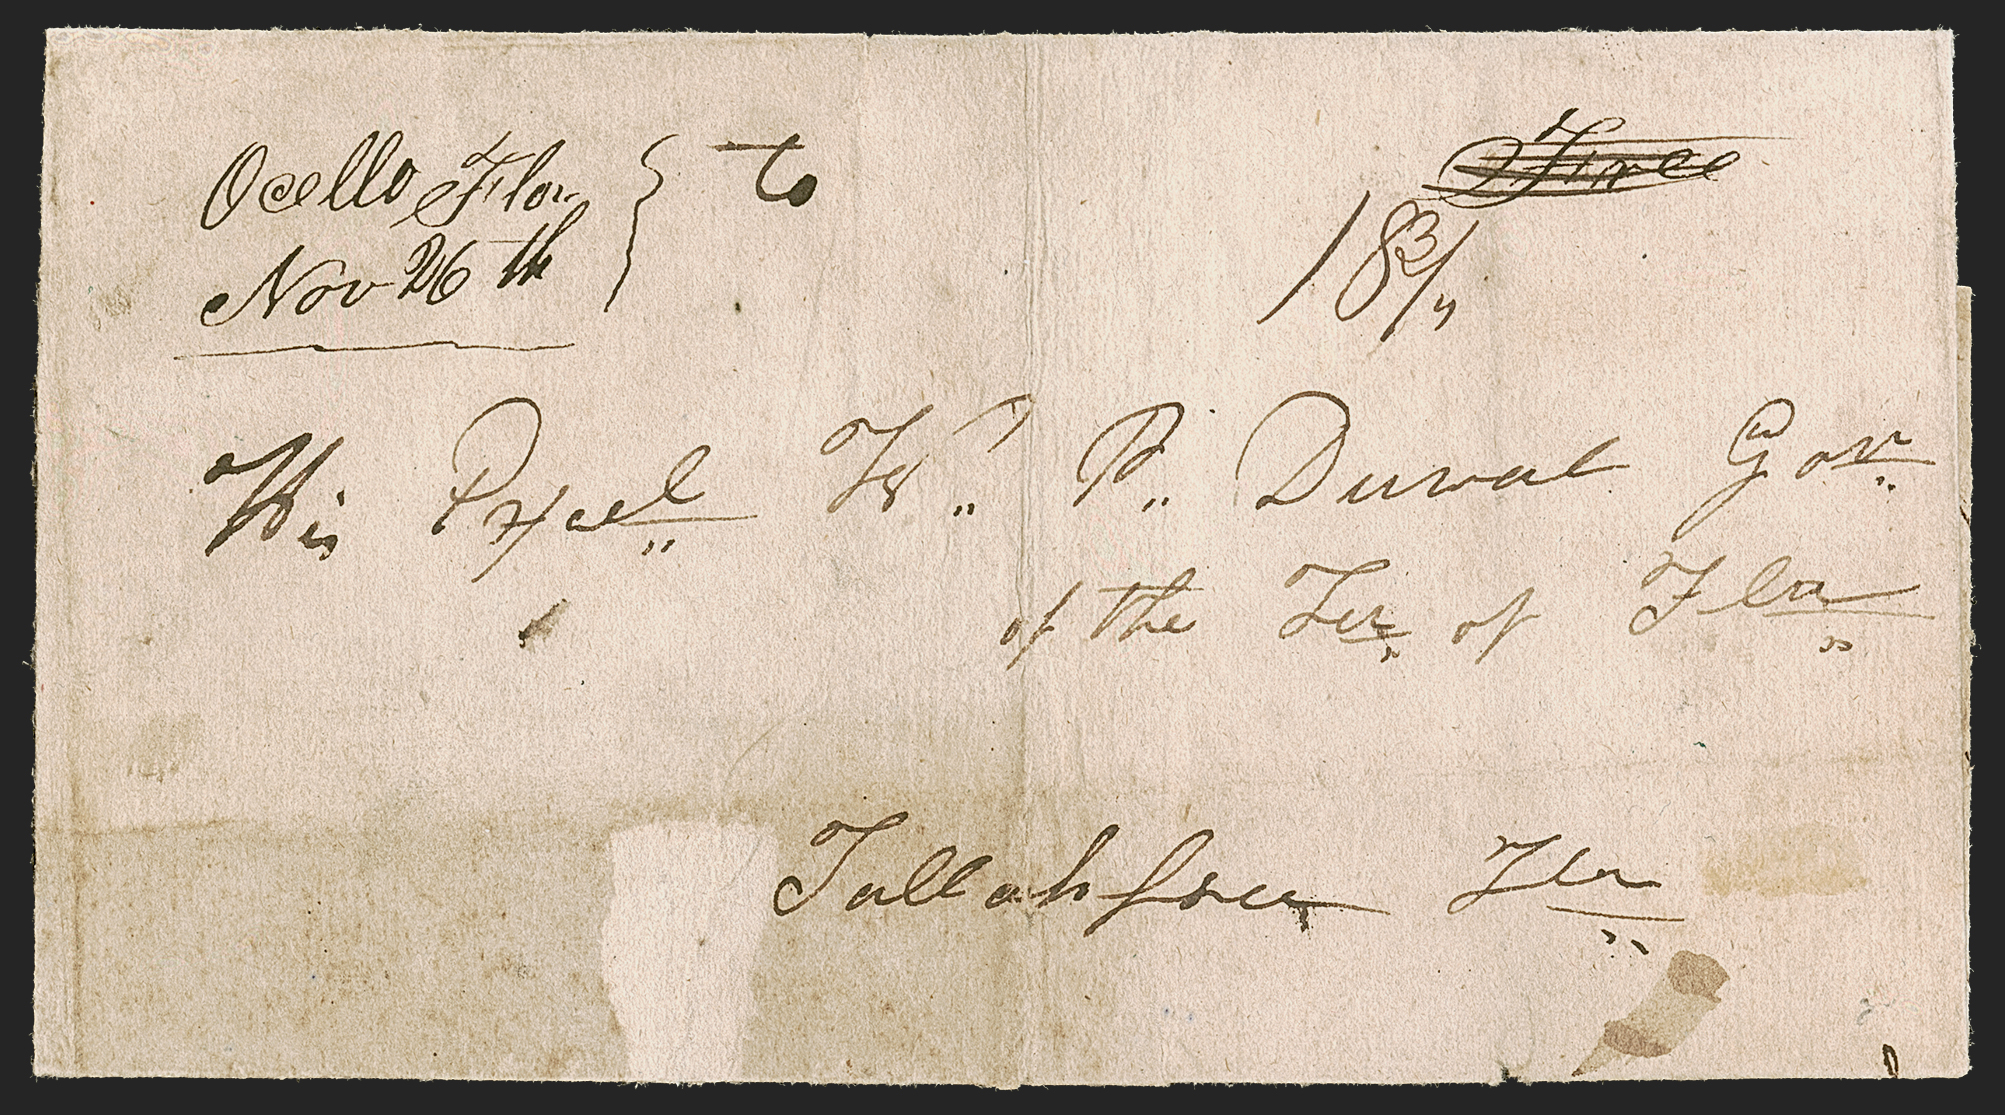 Ocello Flor } to Free
Nov 26th 18 3/4
His Excel W.. P.. Duval Gov
of the Ter of Fla
Tallahſsee Fla